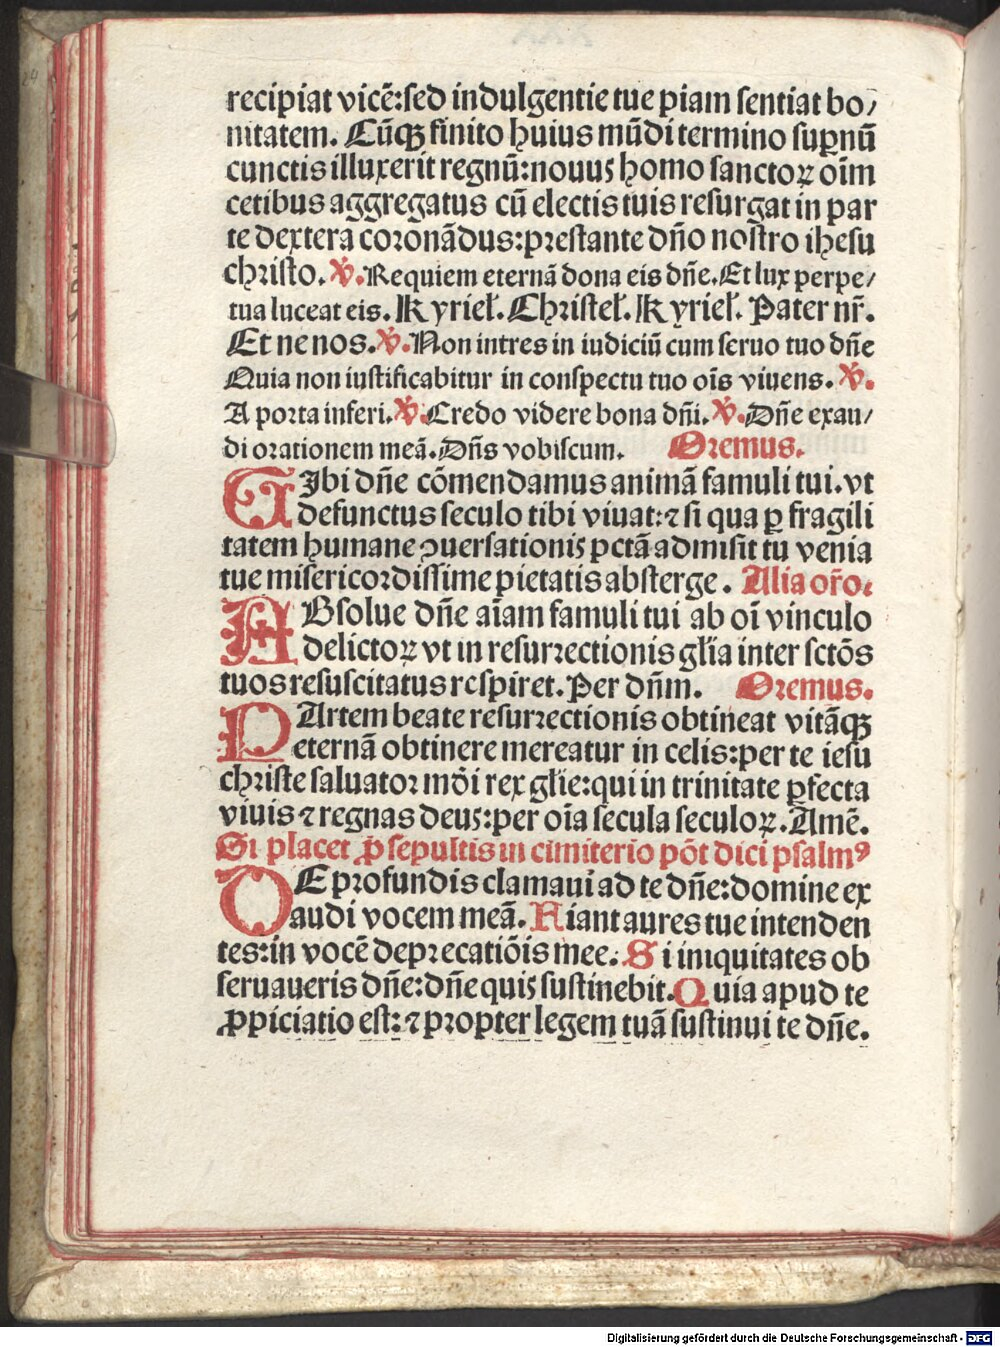 recipiat vicē:sed indulgentie tue piam sentiat bo/
nitatem. Cūqꝫ finito huius mūdi termino suꝑnū
cunctis illuxerit regnū:nouus homo sanctoꝝ oīm
cetibus aggregatus cū electis tuis resurgat in par
te dextera coronādus:prestante dño nostro ihesu
christo. ℣. Requiem eternā dona eis dñe. Et lux perpe/
tua luceat eis. Kyrieł. Christeł. Kyrieł. Pater nr̄.
Et ne nos. ℣. Non intres in iudiciū cum seruo tuo dñe
Quia non iustificabitur in conspectu tuo oīs viuens. ℣.
A porta inferi. ℣. Credo videre bona dñi. ℣. Dñe exau/
di orationem meā. Dñs vobiscum. Oremus.
TIbi dñe cōmendamus animā famuli tui. vt
defunctus seculo tibi viuat:⁊ si qua ꝑ fragili
tatem humane ↄuersationis pctā admisit tu venia
tue misericordissime pietatis absterge. Alia or̄o.
ABsolue dñe aīam famuli tui ab oī vinculo
delictoꝝ vt in resurrectionis glīa inter sctōs
tuos resuscitatus respiret. Per dñm. Oremus.
PArtem beate resurrectionis obtineat vitāqꝫ
eternā obtinere mereatur in celis:per te iesu
christe saluator mōi rex glīe:qui in trinitate ꝑfecta
viuis ⁊ regnas deus:per oīa secula seculoꝝ. Amē.
Si placet ꝓ sepultis in cimiterio pōt dici psalmꝰ
DE profundis clamaui ad te dñe:domine ex
audi vocem meā. Fiant aures tue intenden
tes:in vocē deprecatiōis mee. Si iniquitates ob
seruaueris dñe:dñe quis sustinebit. Quia apud te
ꝓpiciatio est:⁊ propter legem tuā sustinui te dñe.
Digitalisierung gefördert durch die Deutsche Forschungsgemeinschaft - DFG